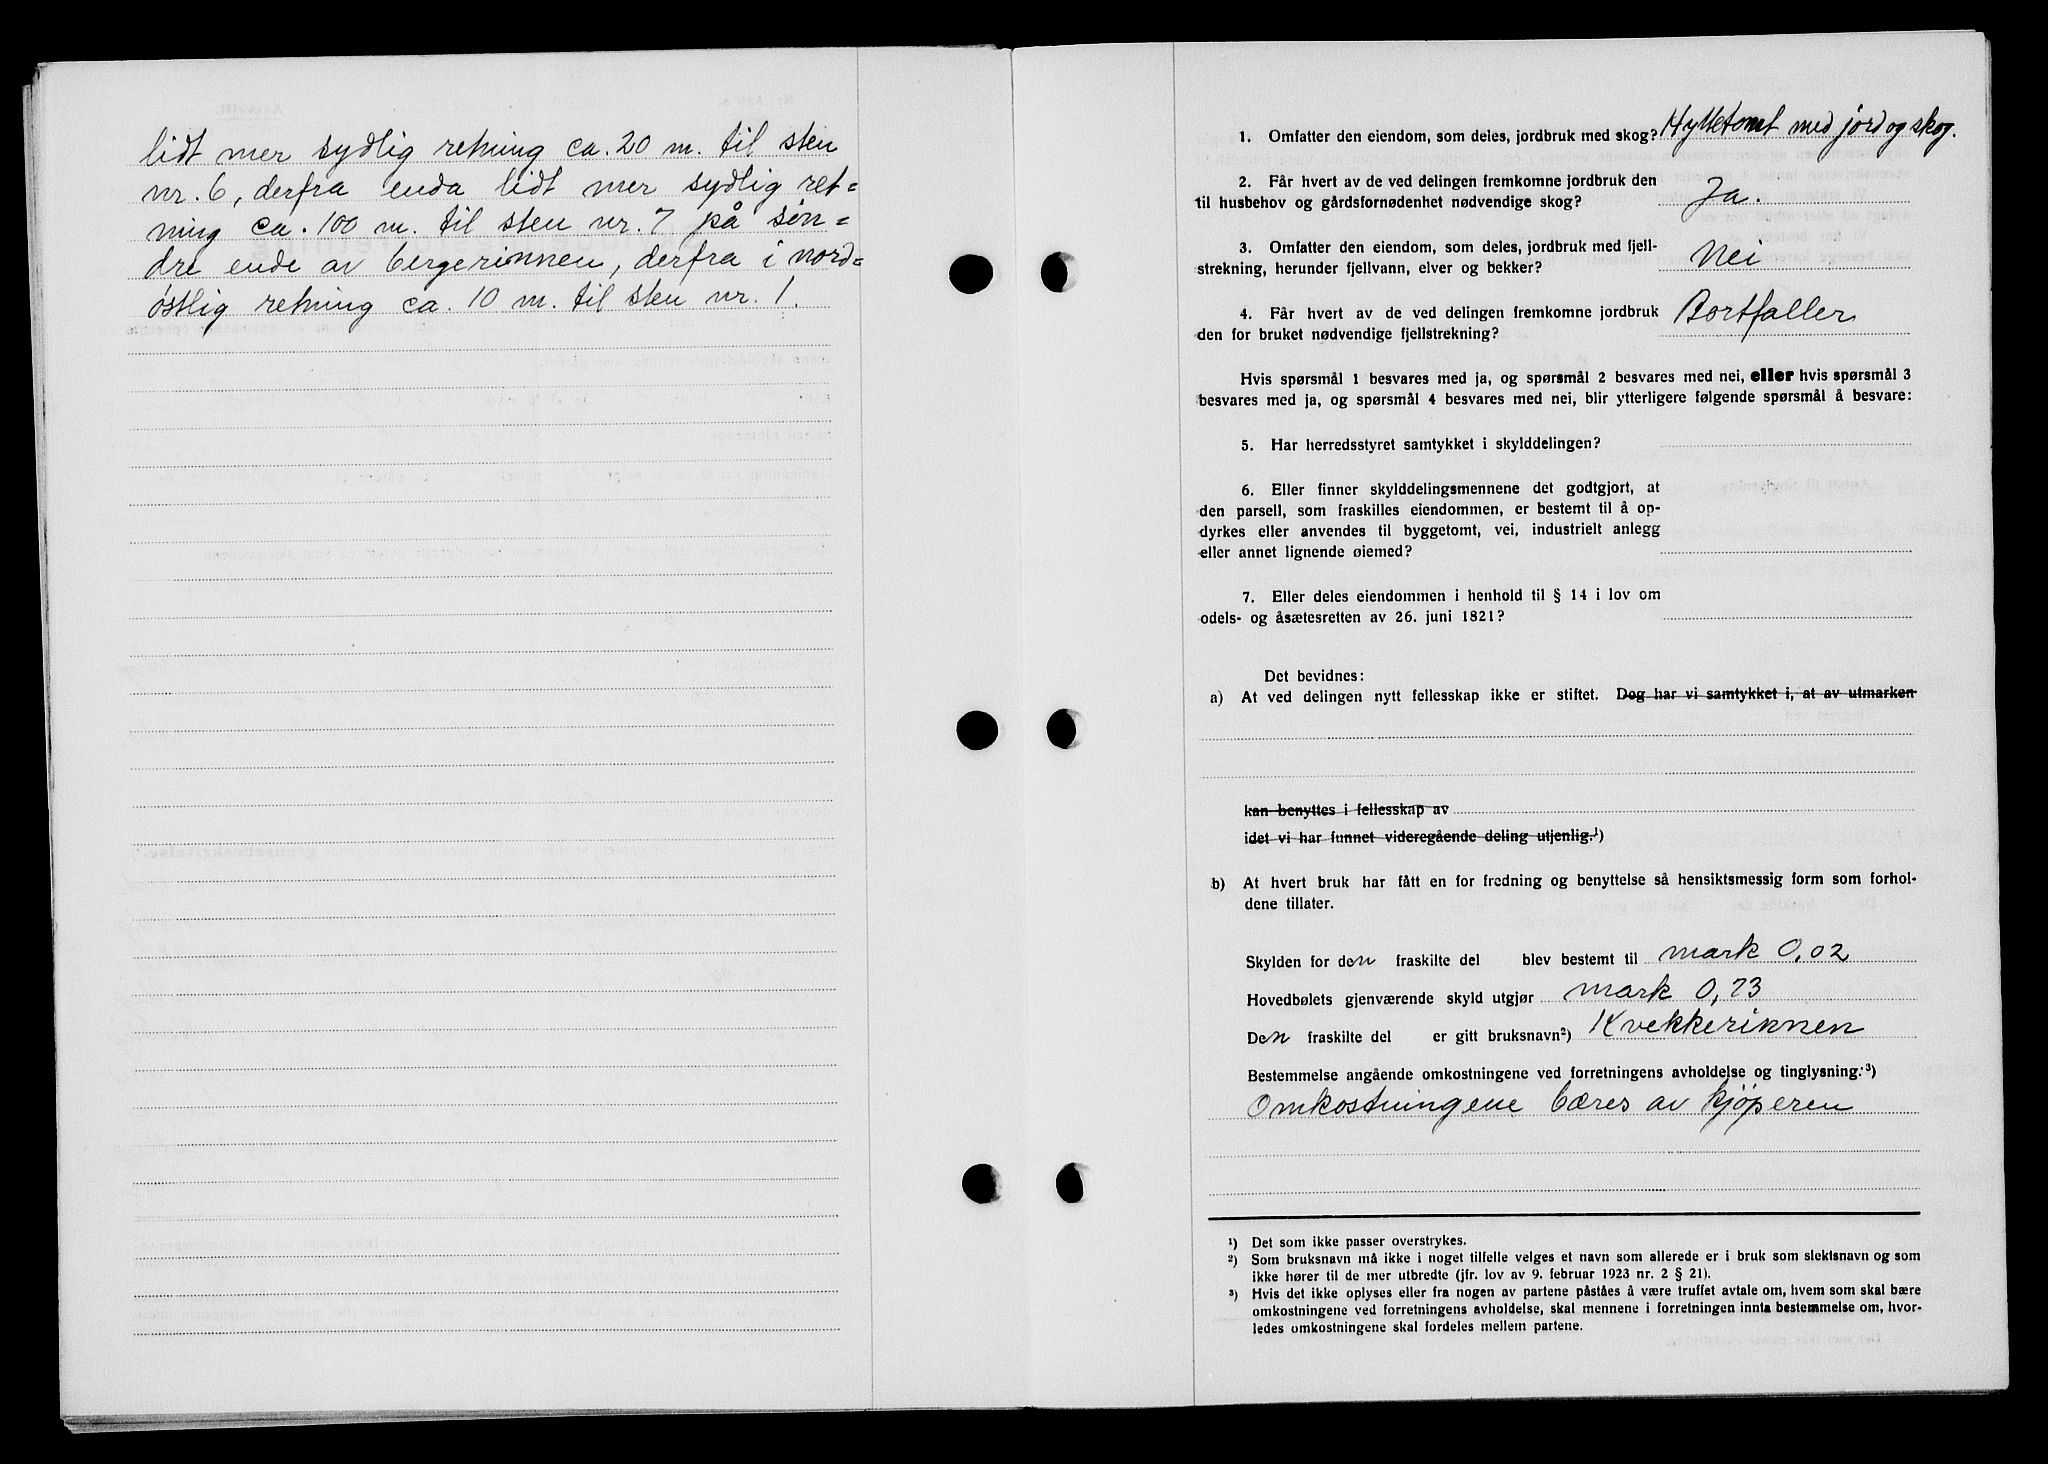 lidt mer sydlig retning ca. 20 m. til sten
nr. 6, derfra enda lidt mer sydlig ret=
ning ca. 100 m. til sten nr. 7 på søn=
dre ende av bergerinnen, derfra i nord=
østlig retning ca. 10 m. til sten nr. 1.
1. Omfatter den eiendom, som deles, jordbruk med skog? Hyttetomt med jord og skog.
2. Får hvert av de ved delingen fremkomne jordbruk den
til husbehov og gårdsfornødenhet nødvendige skog? Ja.
3. Omfatter den eiendom, som deles, jordbruk med fjell-
strekning, herunder fjellvann, elver og bekker? Nei
4. Får hvert av de ved delingen fremkomne jordbruk
den for bruket nødvendige fjellstrekning? Bortfaller
Hvis spørsmål 1 besvares med ja, og spørsmål 2 besvares med nei, eller hvis spørsmål 3
besvares med ja, og spørsmål 4 besvares med nei, blir ytterligere følgende spørsmål å besvare:
5. Har herredsstyret samtykket i skylddelingen?
6. Eller finner skylddelingsmennene det godtgjort, at
den parsell, som fraskilles eiendommen, er bestemt til å op-
dyrkes eller anvendes til byggetomt, vei, industrielt anlegg
eller annet lignende øiemed?
7. Eller deles eiendommen i henhold til § 14 i lov om
odels- og åsætesretten av 26. juni 1821?
Det bevidnes:
a) At ved delingen nytt fellesskap ikke er stiftet. Dog har vi samtykket i, at av utmarken
kan benyttes i fellesskap av
idet vi har funnet videregående deling utjenlig.¹)
b) At hvert bruk har fått en for fredning og benyttelse så hensiktsmessig form som forhol-
dene tillater.
Skylden for den fraskilte del blev bestemt til mark 0,02
Hovedbølets gjenværende skyld utgjør mark 0,73
Den fraskilte del er gitt bruksnavn²) Kvekkerinnen
Bestemmelse angående omkostningene ved forretningens avholdelse og tinglysning.³)
Omkostningene bæres av kjøperen
¹) Det som ikke passer overstrykes.
²) Som bruksnavn må ikke i noget tilfelle velges et navn som allerede er i bruk som slektsnavn og som
ikke hører til de mer utbredte (jfr. lov av 9. februar 1923 nr. 2 § 21).
³) Hvis det ikke oplyses eller fra nogen av partene påståes å være truffet avtale om, hvem som skal bære
omkostningene ved forretningens avholdelse, skal mennene i forretningen innta bestemmelse om, hvor-
ledes omkostningene skal fordeles mellem partene.